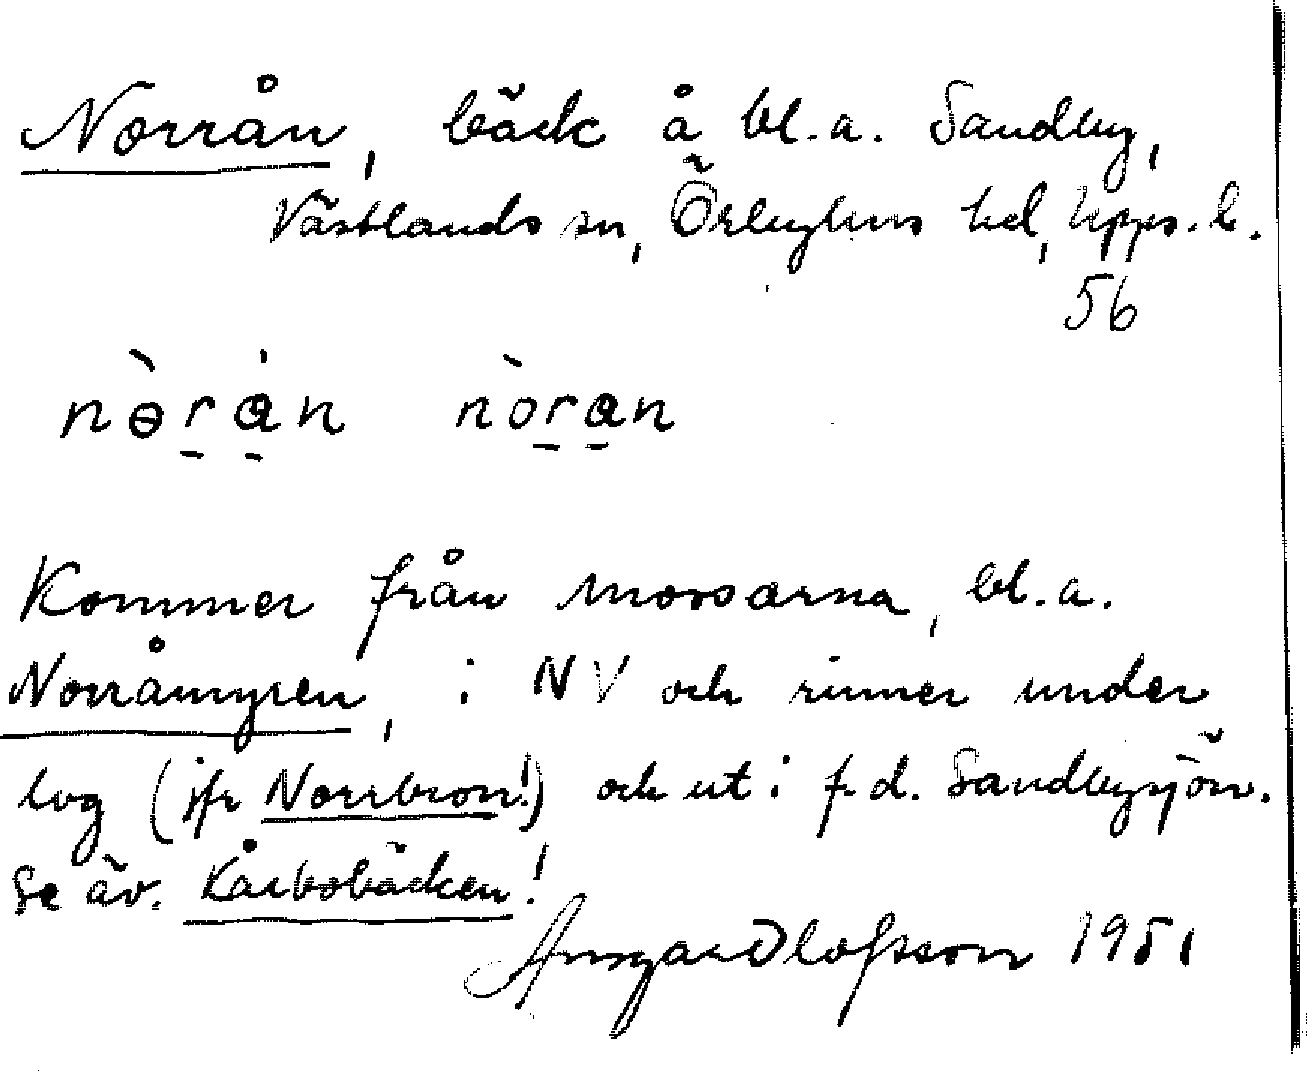 Norrån, bäck å bl.a. Sandby,
Västlands sn, Örbyhus hd, Upps. l.
56
nə̀rån nòran
Kommer från mossarna, bl.a.
Norråmyren, i NV och rinner under
lvg (jfr Norrbron!) och ut i f.d. Sandbysjön.
Se äv. Kårbobäcken!
Ansgar Olofsson 1951